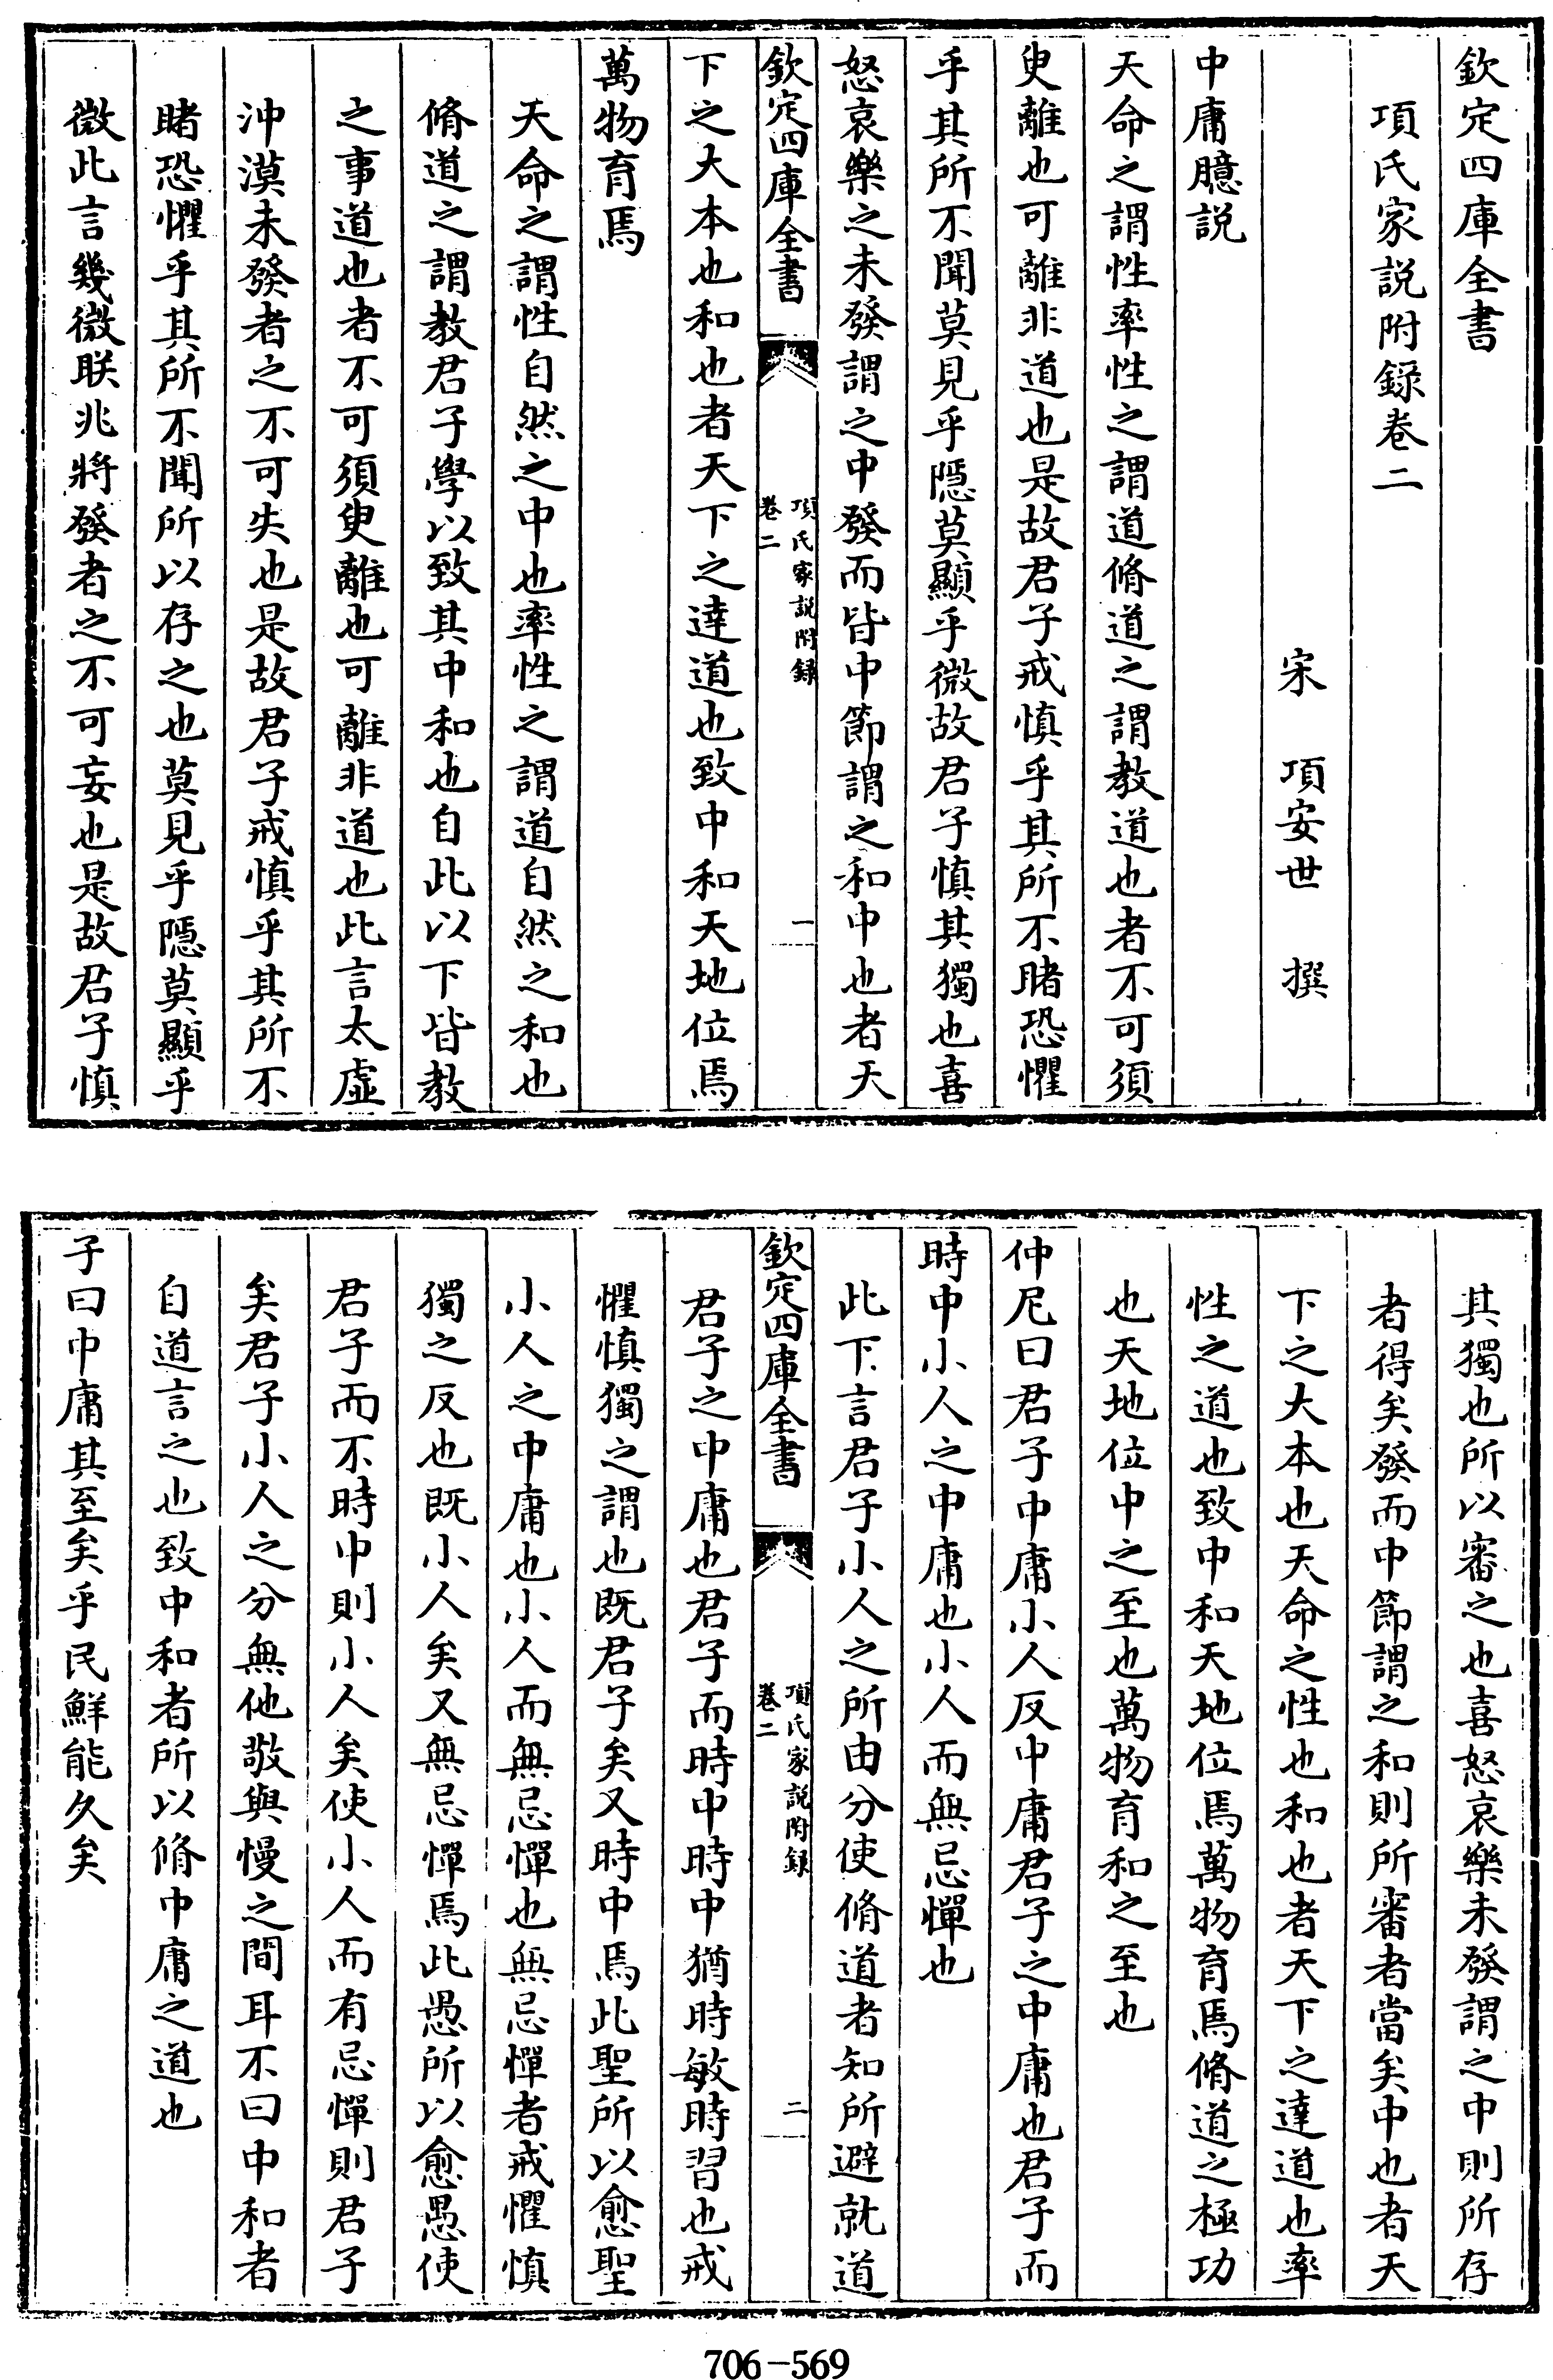 欽定四庫全書
項氏家説附録卷二
宋 項安世 撰
中庸臆説
天命之謂性率性之謂道脩道之謂教道也者不可須
臾離也可離非道也是故君子戒慎乎其所不睹恐懼
乎其所不聞莫見乎隱莫顯乎微故君子慎其獨也喜
怒哀樂之未發謂之中發而皆中節謂之和中也者天
欽定四庫全書
項氏家説附録
卷二
一
下之大本也和也者天下之達道也致中和天地位焉
萬物育焉
天命之謂性自然之中也率性之謂道自然之和也
脩道之謂教君子學以致其中和也自此以下皆教
之事道也者不可須臾離也可離非道也此言太虛
沖漠未發者之不可失也是故君子戒慎乎其所不
睹恐懼乎其所不聞所以存之也莫見乎隱莫顯乎
微此言幾微联兆將發者之不可妄也是故君子慎
其獨也所以審之也喜怒哀樂未發謂之中則所存
者得矣發而中節謂之和則所審者當矣中也者天
下之大本也天命之性也和也者天下之達道也率
性之道也致中和天地位焉萬物育焉脩道之極功
也天地位中之至也萬物育和之至也
仲尼曰君子中庸小人反中庸君子之中庸也君子而
時中小人之中庸也小人而無忌憚也
此下言君子小人之所由分使脩道者知所避就道
欽定四庫全書
項氏家説附録
卷二
二
君子之中庸也君子而時中時中猶時敏時習也戒
懼慎獨之謂也既君子矣又時中焉此聖所以愈聖
小人之中庸也小人而無忌憚也無忌憚者戒懼慎
獨之反也既小人矣又無忌憚焉此愚所以愈愚使
君子而不時中則小人矣使小人而有忌憚則君子
矣君子小人之分無他敬與慢之間耳不曰中和者
自道言之也致中和者所以脩中庸之道也
子曰中庸其至矣乎民鮮能久矣
706-569